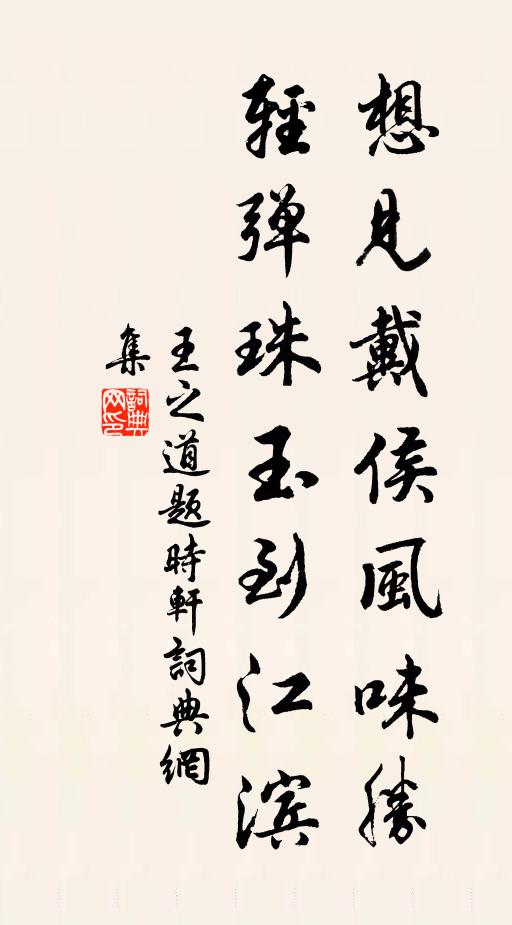 想見戴侯風味勝
輕彈珠玉到江滨
王之道題時軒詞典網
集
詞典
网印